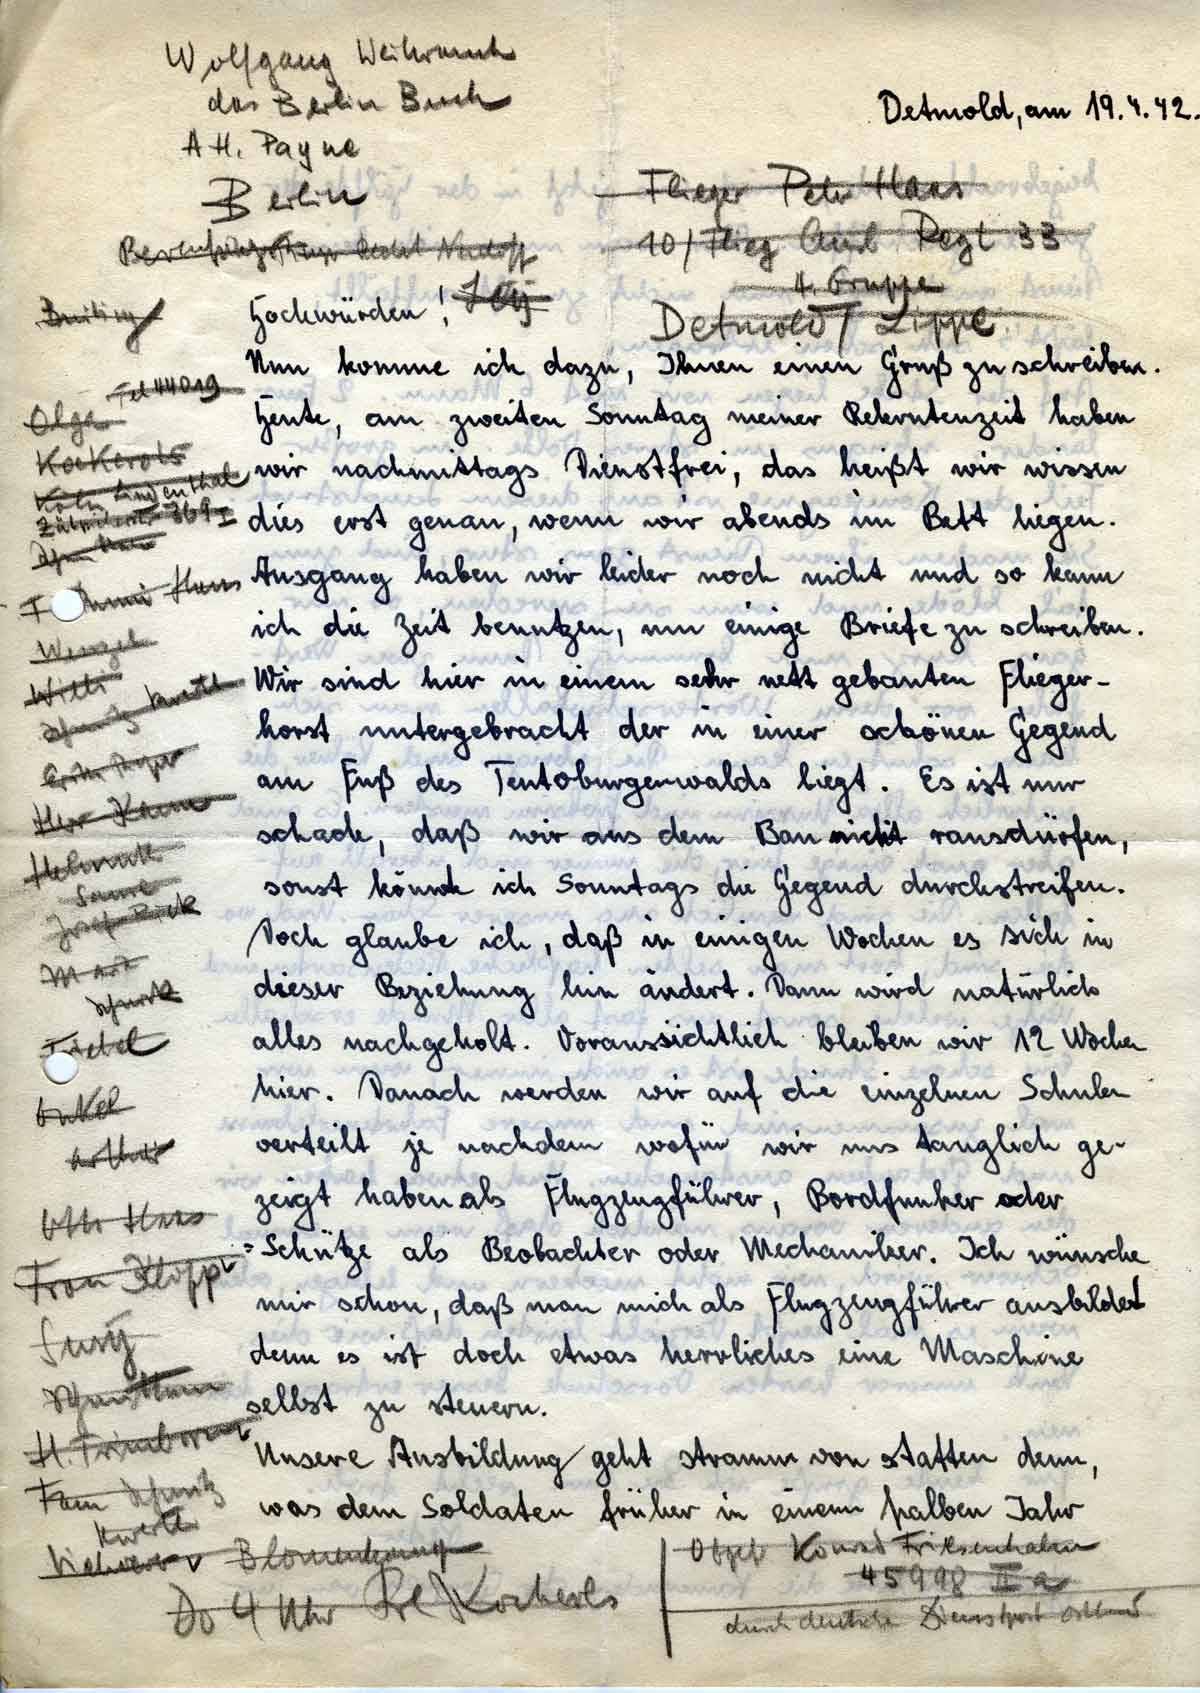 Wolfgang Weihrauch
das Berlin Buch
A H. Payne
Berlin
Detmold, am 19.4.42.
Flieger Peter Haas
10/ Flieg Ausb. Regt 33
4. Gruppe
Detmold / Lippe
Hochwürden!
Nun komme ich dazu, Ihnen einen Gruß zu schreiben.
Heute, am zweiten Sonntag meiner Rekrutenzeit haben
wir nachmittags Dienstfrei, das heißt wir wissen
dies erst genau, wenn wir abends im Bett liegen.
Ausgang haben wir leider noch nicht und so kann
ich die Zeit benutzen, um einige Briefe zu schreiben.
Wir sind hier in einem sehr nett gebauten Flieger-
horst untergebracht der in einer schönen Gegend
am Fuß des Teutoburgerwalds liegt. Es ist nur
schade, daß wir aus dem Bau nicht rausdürfen,
sonst könnte ich Sonntags die Gegend durchstreifen.
Doch glaube ich, daß in einigen Wochen es sich in
dieser Beziehung hin ändert. Dann wird natürlich
alles nachgeholt. Voraussichtlich bleiben wir 12 Wochen
hier. Danach werden wir auf die einzelnen Schulen
verteilt je nachdem wofür wir uns tauglich ge-
zeigt haben als Flugzeugführer, Bordfunker oder
-Schütze als Beobachter oder Mechaniker. Ich wünsche
mir schon, daß man mich als Flugzeugführer ausbildet
denn es ist doch etwas herrliches eine Maschine
selbst zu steuern.
Unsere Ausbildung geht stramm von statten denn,
was dem Soldaten früher in einem halben Jahr
Tel 44019
Olga
Kockerols
Köln Lindenthal
369 I
Haas
Wenzel
Willi
Herr Kamm
Helmuth
Josef Rick
Triebel
Onkel
Arthur
Otto Haas
Frau Klipp
Susy
H. Frimborn
Fam
Blomenkamp
Do 4 Uhr Frl Kockerols
Obgef Konrad Friesenhahn
45998 II a
durch deutsche Dienstpost Ostland